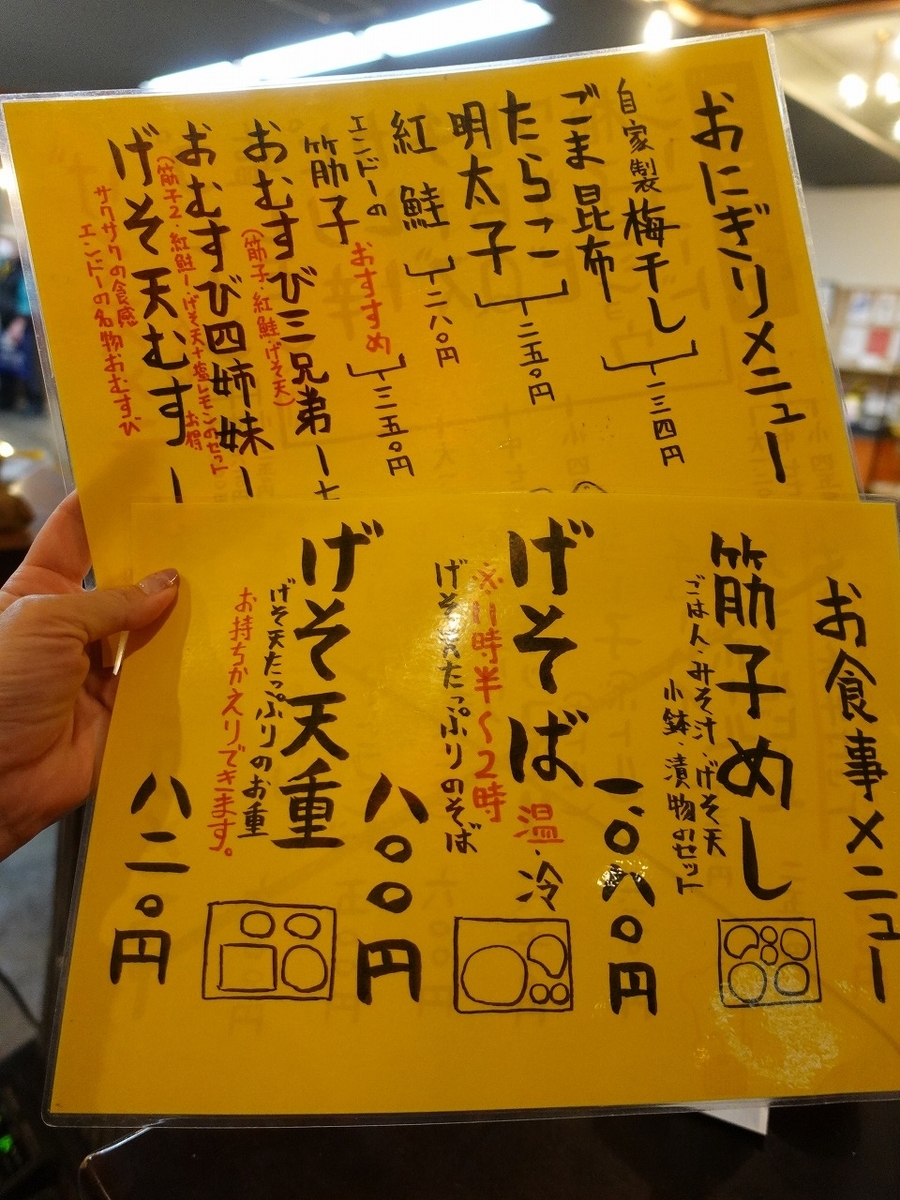 おにぎりメニュー
自家製梅干し
ごま昆布
一三四円
たらこ
明太子
二五〇円
紅鮭
二八〇円
エンドーの
筋子 おすすめ
三五〇円
おむすび三兄弟
(筋子・紅鮭・げそ天)
おむすび四姉妹
(筋子2・紅鮭1・げそ天+塩レモンのセット
お得
げそ天むす
サクサクの食感
エンドーの名物おむすび
お食事メニュー
筋子めし
ごはん・みそ汁・げそ天
小鉢・漬物のセット
一、〇八〇円
げそば 温・冷
※11時半〜2時
げそ天たっぷりのそば
八〇〇円
げそ天重
げそ天たっぷりのお重
お持ちかえりできます。
八二〇円